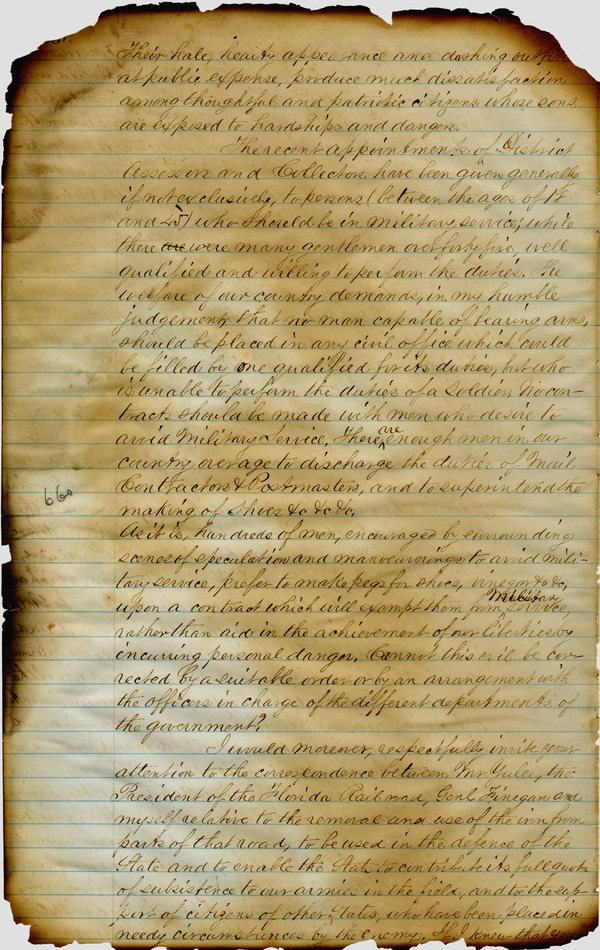 Their hale, hearty appearance and dashing outfits
at public expense, produce much dissatisfaction
among thoughtful and patriotic citizens whose sons
are exposed to hardships and danger.
The recent appointments of District
Assessors and Collectors have been given generally
if not exclusively, to persons (between the ages of 18
and 45) who should be in military service, while
there are were many gentlemen over forty five, well
qualified and willing to perform the duties. The
welfare of our country demands, in my humble
judgement, that no man capable of bearing arms,
should be placed in any civil office which could
be filled by one qualified for its duties, but who
is unable to perform the duties of a Soldier. No con-
tracts should be made with men who desire to
avoid Military Service. There are enough men in our
country over age to discharge the duties of Mail
Contractors & Postmasters, and to superintend the
660
making of Shoes &c &c &c.
As it is, hundreds of men, encouraged by surrounding
scenes of speculation and manoeuverings to avoid mili-
tary service, prefer to make pegs for shoes, vinegar &c &c,
upon a contract which will exempt them from Military service
rather than aid in the achievement of our liberties by
incurring personal danger. Cannot this evil be cor-
rected by a suitable order or by an arrangement with
the officers in charge of the different departments of
the government?
I would moreover, respectfully invite your
attention to the correspondence between Mr Yulee, the
President of the Florida Railroad, Genl Finegan and
myself relative to the removal and use of the iron from
parts of that road, to be used in the defence of the
State and to enable the State to contribute its full quota
of subsistence to our armies in the field, and to the sup-
port of citizens of other States, who have been placed in
needy circumstances by the Enemy. If I knew that you